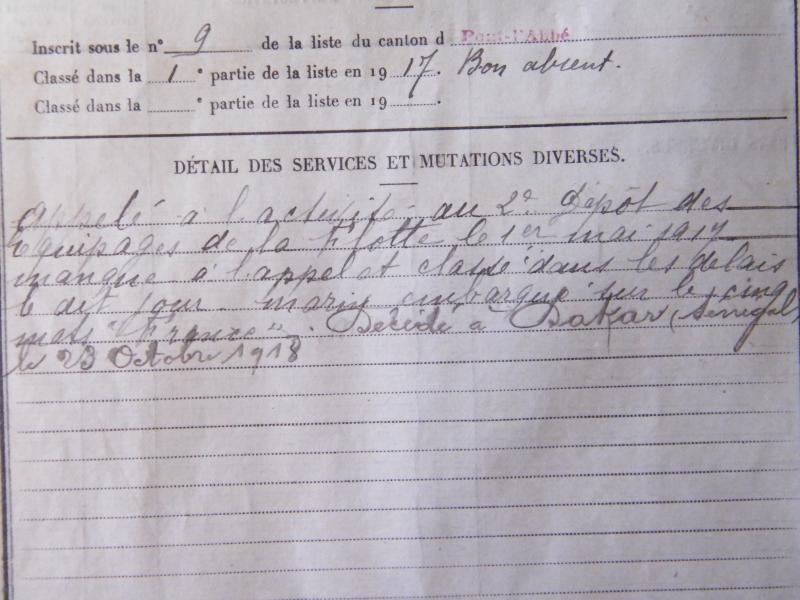 Inscrit sous le n° 9 de la liste du canton d Pont-l'Abbé
Classé dans la 1 e partie de la liste en 1917. Bon absent.
Classé dans la e partie de la liste en 19 .
DÉTAIL DES SERVICES ET MUTATIONS DIVERSES.
Appelé à l'activité au 2e Dépôt des
Equipages de la Flotte le 1er mai 1917
manque à l'appel et classé dans les délais
le dit jour marin embarqué sur le cinq
mats "France". Décédé à Dakar (Sénégal)
le 23 Octobre 1918